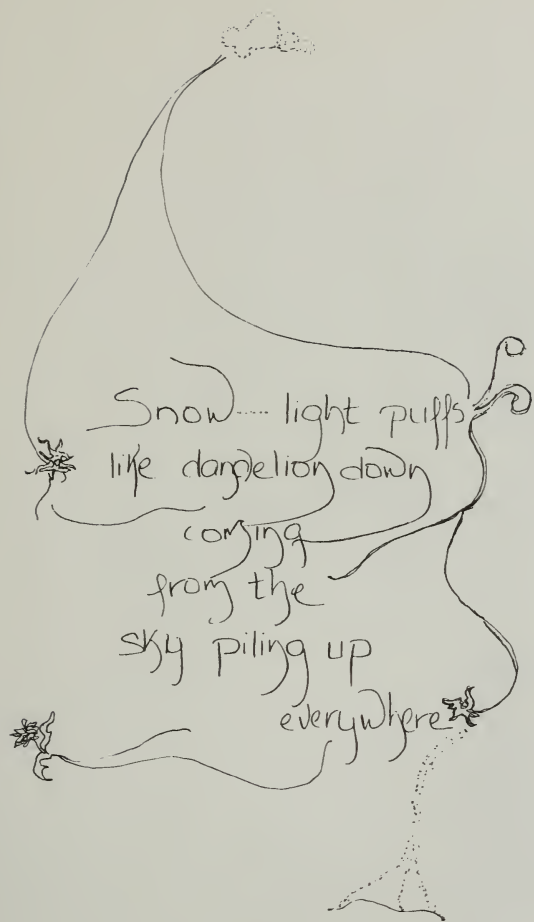 Snow..... light puffs
like dandelion down
coming
from the
sky piling up
everywhere